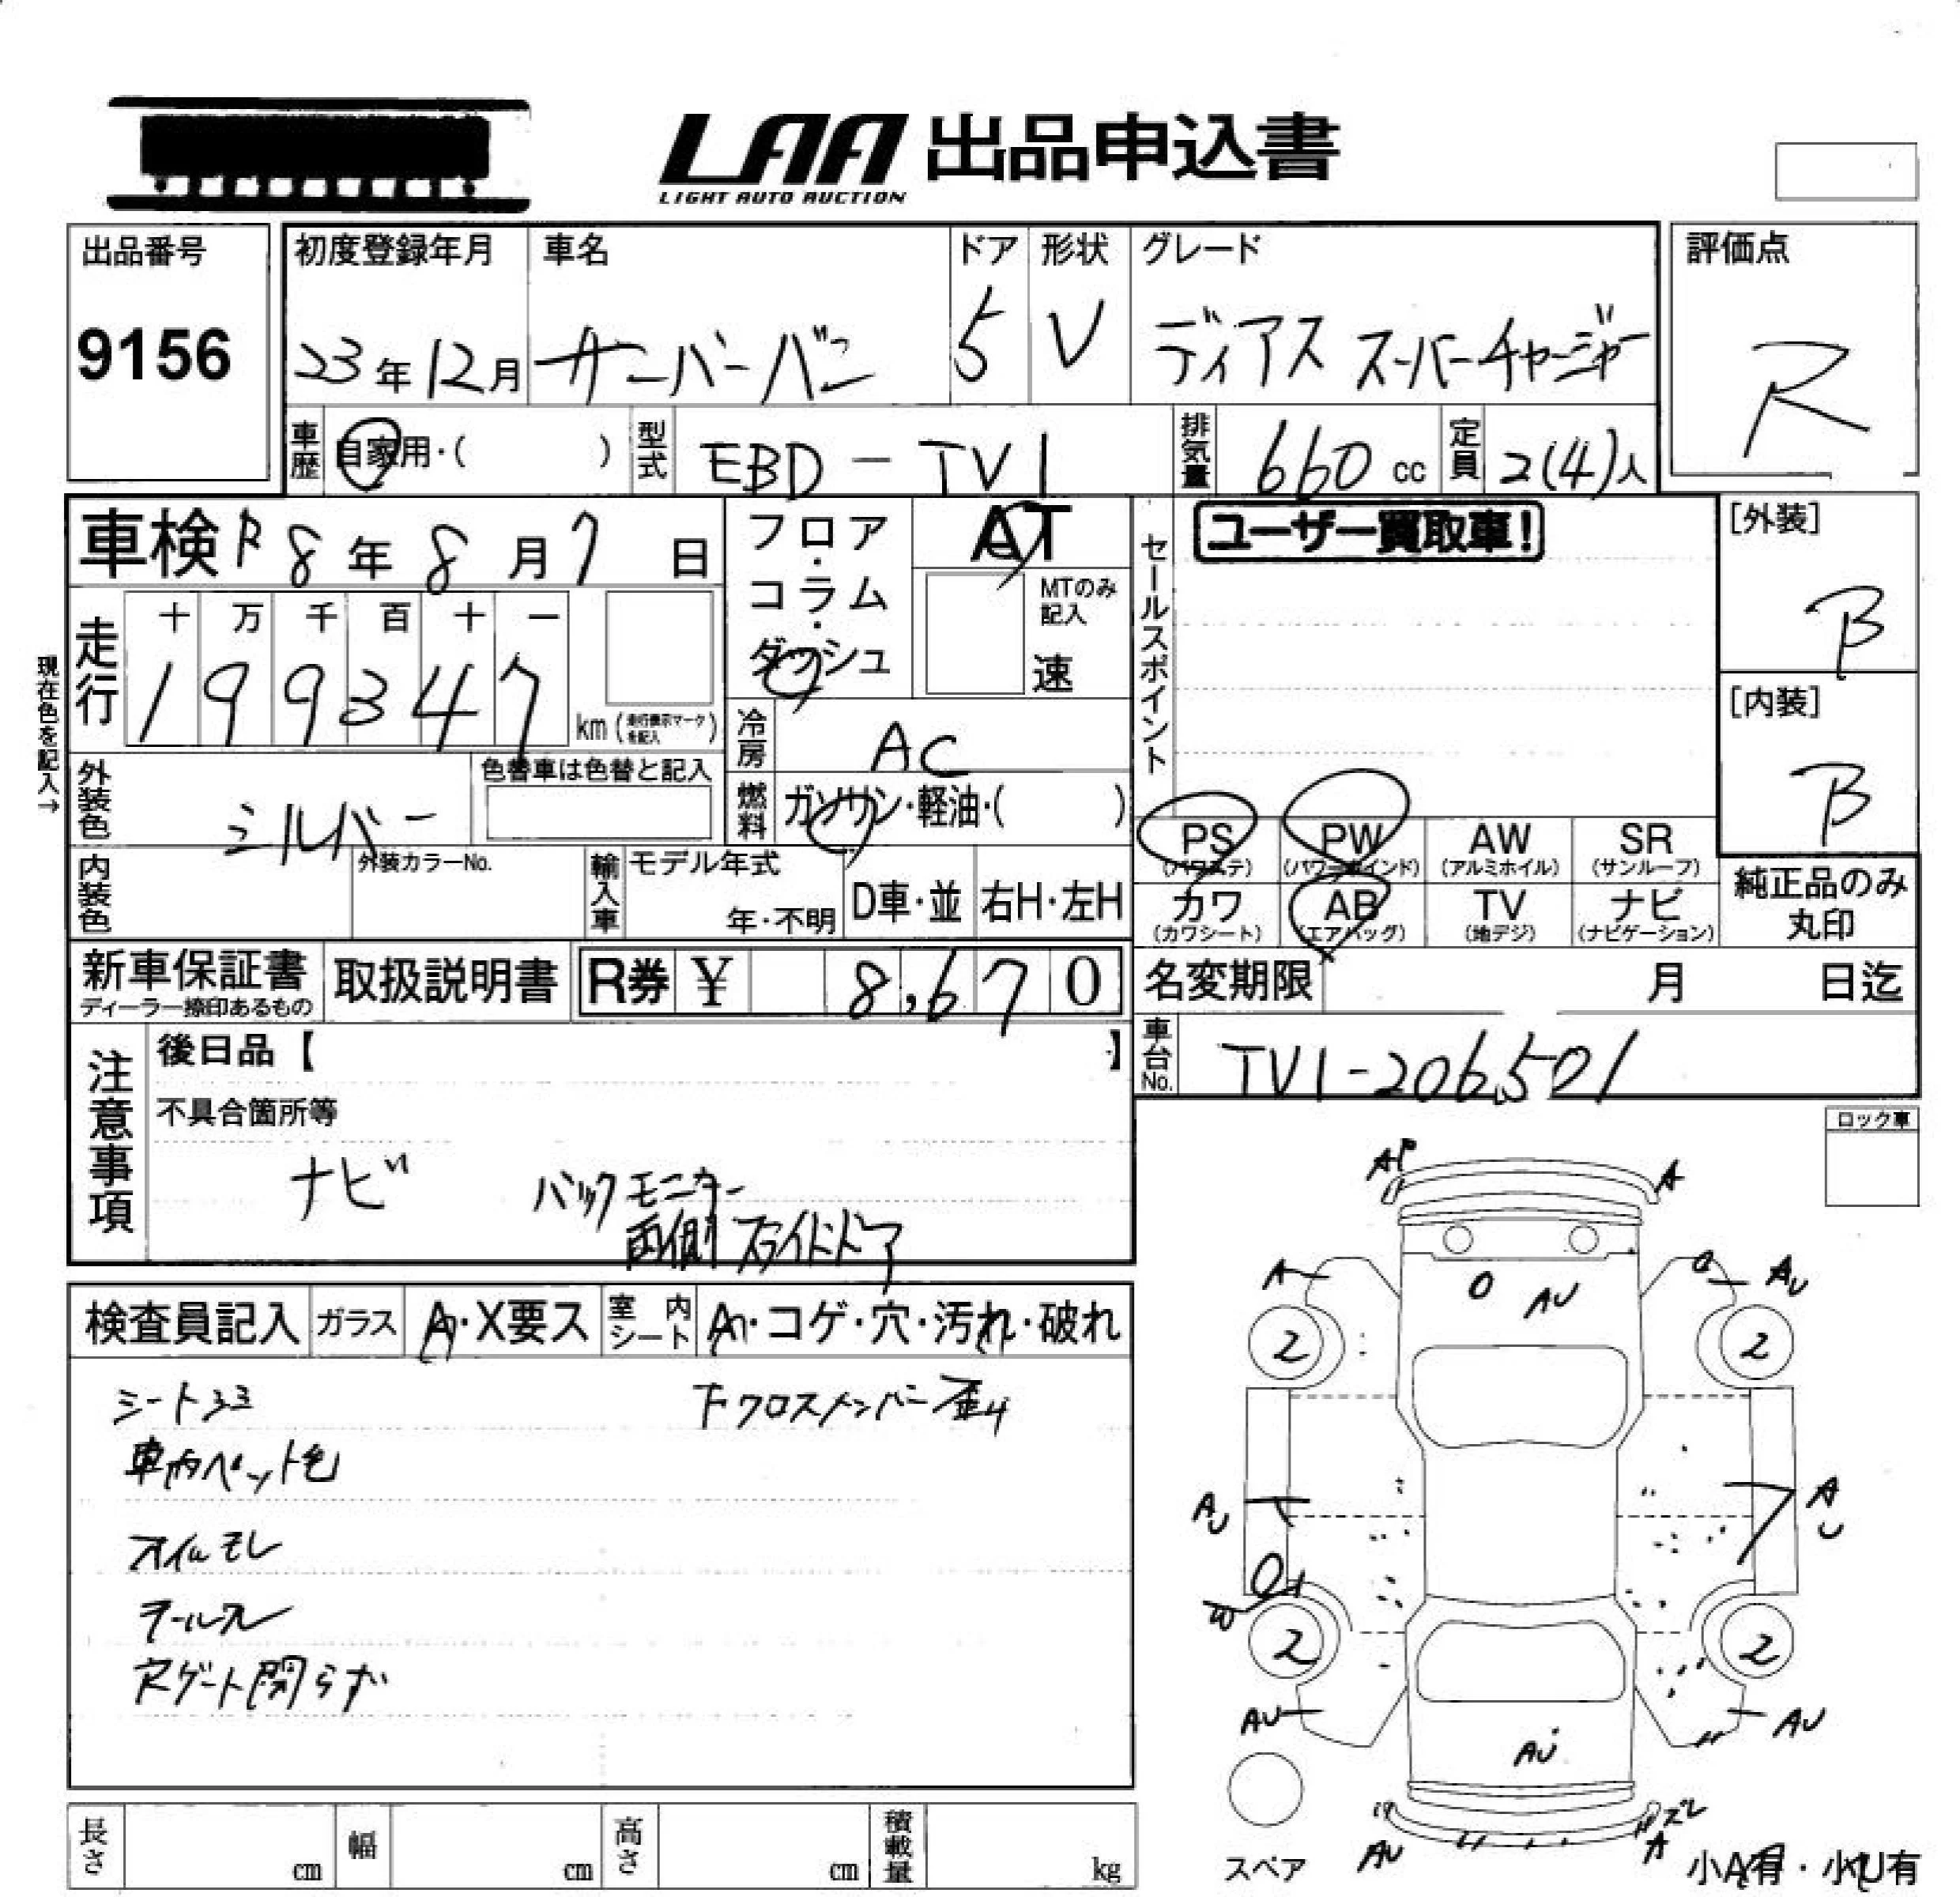 LAA 出品申込書
LIGHT AUTO AUCTION
出品番号
9156
初度登録年月
23年12月
車名
サンバーバン
ドア
5
形状
V
グレード
ディアス スーパーチャージャー
評価点
R
車歴
自家用・( )
型式
EBD-TV1
排気量
660 cc
定員
2(4)人
車検 R 8年8月7日
フロア・コラム・ダッシュ
AT
MTのみ記入
速
セールスポイント
ユーザー買取車!
[外装]
B
[内装]
B
現在色を記入→
走行
十 万 千 百 十 一
1 9 9 3 4 7
km (走行表示マークを記入)
冷房
AC
外装色
シルバー
色替車は色替と記入
燃料
ガソリン・軽油・( )
PS (パワステ)
PW (パワーウインド)
AW (アルミホイル)
SR (サンルーフ)
カワ (カワシート)
AB (エアバッグ)
TV (地デジ)
ナビ (ナビゲーション)
純正品のみ丸印
内装色
外装カラーNo.
輸入車
モデル年式
年・不明
D車・並
右H・左H
新車保証書
ディーラー捺印あるもの
取扱説明書
R券 ¥ 8,670
名変期限 月 日迄
車台No.
TV1-206501
注意事項
後日品【 】
不具合箇所等
ナビ バックモニター
両側スライドドア
ロック車
検査員記入
ガラス
A・X要ス
室内シート
A・コゲ・穴・汚れ・破れ
シート
下クロスメンバー歪み
車内ペット毛
オイルモレ
Rゲート開らず
AP
A
A
AU
O
AU
2
2
AU
A
U
2
2
AU
AU
AU
スペア
AU
ズレ
A
小A有・小U有
長さ cm
幅 cm
高さ cm
積載量 kg